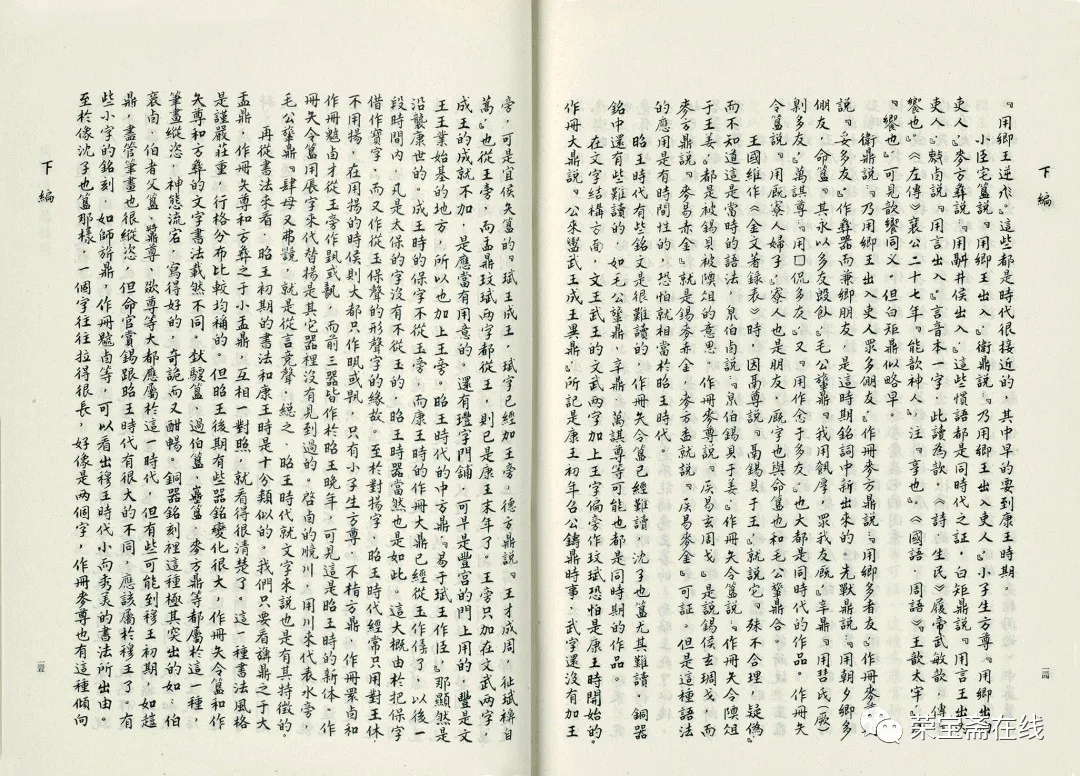 下編
『用卿王逆洀』。這些都是時代很接近的，其中早的要到康王時期。
小臣宅簋説『用卿王出入』，衛鼎説『乃用卿王出入吏人』，小子生方尊『用卿出
吏人』，麥方彝説『用井侯出入』。這些慣語都是同時代之証。白矩鼎説『用言王出入
吏人』，叔卣説『用言出入』，言音本一字，此讀為歆，《詩·生民》『履帝武敏歆』，傳『
饗也』。《左傳》襄公二十七年『能歆神人』，注『享也』。《國語·周語》『王歆太牢』，
『饗也』，可見歆饗同义，但白矩鼎似略早。
衛鼎説『乃用卿王出入吏人眾多倗友』，作冊麥方鼎説『用卿多者友』，作冊麥
説『妥多友』，作彝器而兼卿朋友，是這時期銘詞中新出来的。先獸鼎説『用朝夕卿多
倗友』，命簋『其永以多友飤』，毛公鼎『我用飤厚眾我友』，辛鼎『用（厥）
剝多友』，萬諆尊『用囗侃多友』，又『用作念于多友』，也大都是同時代的作品。作冊矢
令簋説『用寮人婦子』，寮人也是朋友，字也與命簋也和毛公鼎合。
王國維作《金文著録表》時，因禼尊説『禼錫貝于王』，就説它『殊不合理，疑偽』。
而不知道這是當時的語法，彔伯卣説『彔伯錫貝于姜』，作冊矢令簋説『作冊矢令俎
于王姜』，都是被錫貝被俎的意思，作冊麥尊説『侯易玄周戈』，是説錫侯玄琱戈，而
麥方鼎説『麥易赤金』，就是錫麥赤金，麥方盉就説『侯易麥金』，可証。但是這種語法
的應用是有時間性的，恐怕就相當於昭王時代。
昭王時代有些銘文是很難讀的，如作冊矢令簋已經難讀，沈子也簋尤其難讀。銅器
銘中還有些難讀的，如毛公鼎，辛鼎，萬諆尊等可能也都是同時期的作品。
在文字結構方面，文王武王的文武两字加上王字偏旁作玟珷恐怕是康王時開始的。
作冊大鼎説『公來鑄武王成王異鼎』，所記是康王初年召公鑄鼎時事，武字還没有加王
一二四
下編
旁，可是宜侯矢簋的『珷王』成王，珷字已經加王旁，德方鼎説『王才成周，征珷祼自
蒿』，也從王旁，而盂鼎玟珷两字都從王，則已是康王末年了。王旁只加在文武两字，
成王的成就不加，是應當有用意的。還有豐字門鋪，可早是豐宫的門上用的，豐是文
王王業始基的地方，所以也加上王旁。昭王時代的中方鼎『易于珷王作臣』，那顯然是
沿襲康世的。成王時的保字不從玉旁，而康王時的作冊大鼎已經從玉作㻄了，以後一
段時間内，凡是太保的字没有不從玉的，昭王時器當然也是如此。這大概由於把保字
借作寶字，而又作從玉保聲的形聲字的緣故。至於對揚字，昭王時代經常只用對王休
不用揚，在用揚的時侯則大都只作或，只有小子生方尊，不栺方鼎，作冊睘卣和
作冊卣才從王旁作或，而前三器皆作於昭王晚年，可見這是昭王時的新体。作
冊矢令簋用展字来代替揚是其它器裡没有見到過的。启卣的㬇川，用川来代表水旁，
毛公鼎『肆母又弗』，就是從言竟聲，總之，昭王時代就文字来説也是有其特徵的。
再從書法来看，昭王初期的書法和康王時是十分類似的。我們只要看旟鼎之于大
盂鼎，作冊矢尊和方彝之于小盂鼎，互相一對照，就看得很清楚了。這一種書法風格
是謹嚴莊重，行格分布比較均稱的。但昭王後期有些器銘變化很大，作冊矢令簋和作
矢尊和方彝的文字書法截然不同。簋，過伯簋，簋，麥方鼎等都屬於這一種，
筆畫縱恣，神態流宕，寫得好的，奇詭而又酣暢。銅器銘刻裡這種極其突出的如，伯
卣，伯者父簋，尊、欲尊等大都應屬於這一時代，但有些可能到穆王初期，如趞
鼎，盡管筆畫也很縱恣，但命官賞錫跟昭王時代有很大的不同，應該屬於穆王了。有
些小字的銘刻，如師旂鼎，作冊卣等，可以看出穆王時代小而秀美的書法所出由。
至於像沈子也簋那樣，一個字往往拉得很長，好像是两個字，作冊麥尊也有這種傾向
一二五
荣宝斋在线